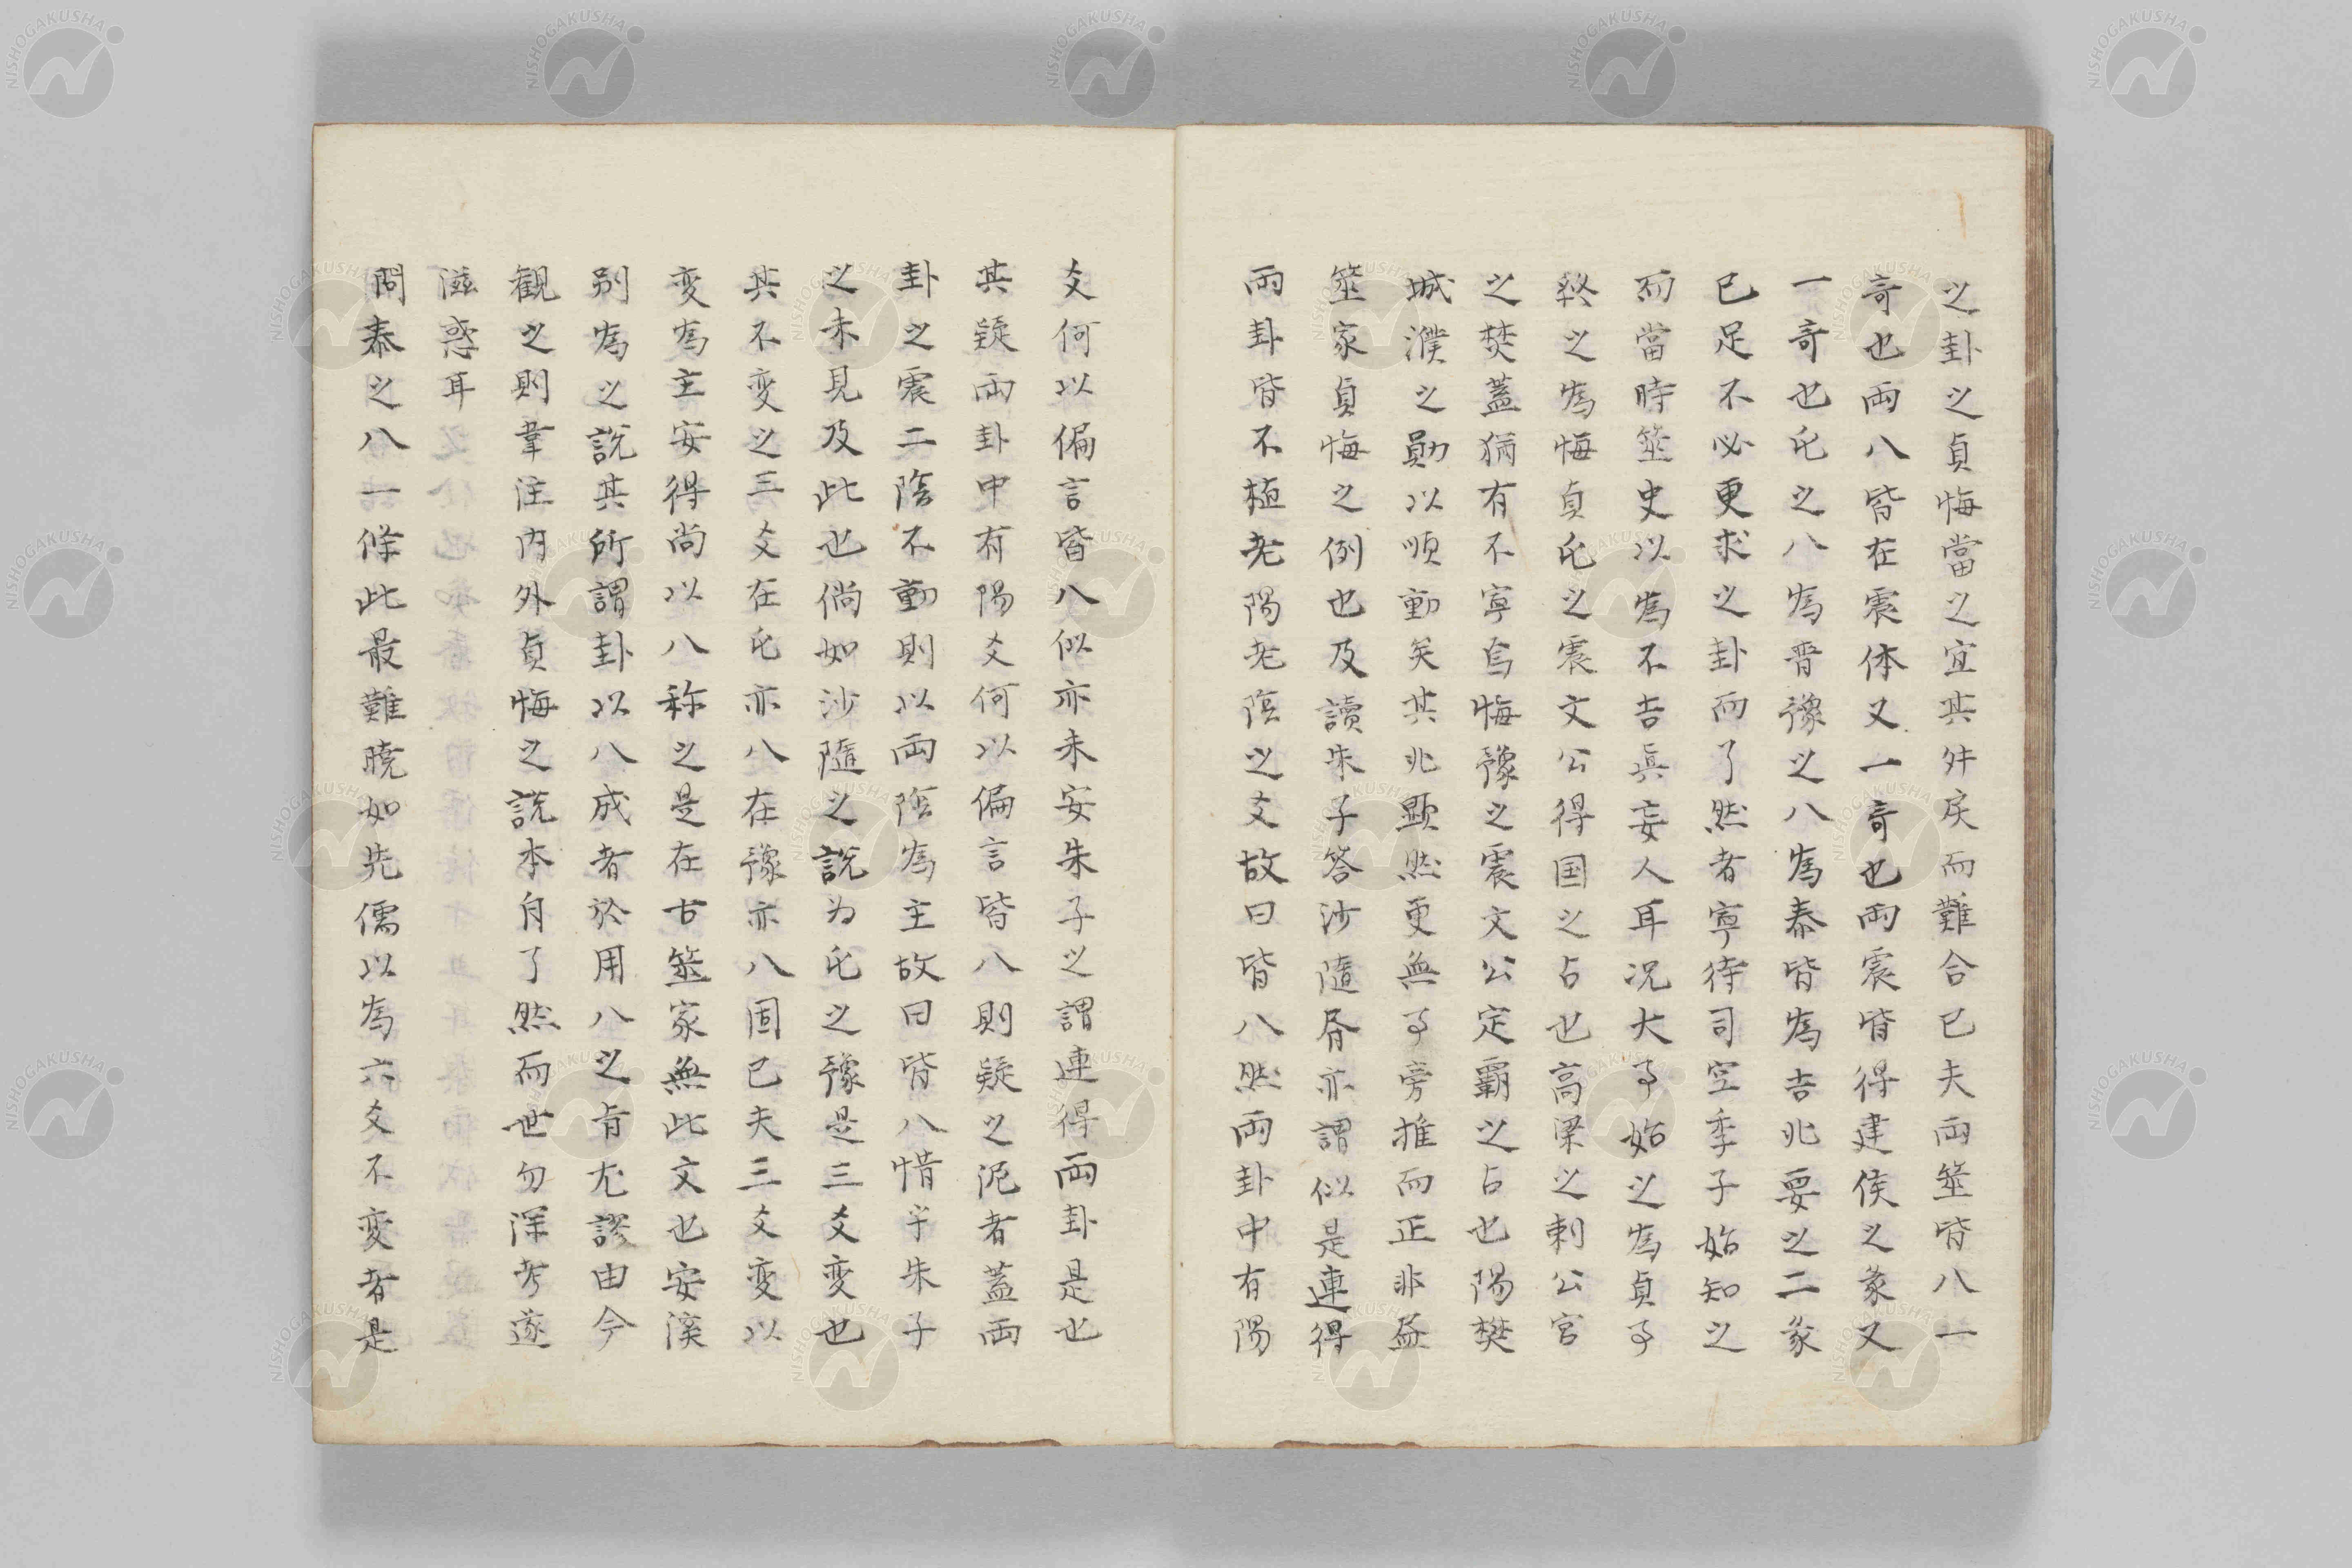 之卦之貞悔當之宜其舛戻而難合已夫両筮皆八一
奇也両八皆在震体又一奇也両震皆得建侯之彖又
一奇也屯之八為晋豫之八為泰皆為吉兆要之二彖
已足不必更求之卦而了然者寧待司空季子始知之
而當時筮史以為不吉真妄人耳况大事始之為貞事
終之為悔貞屯之震文公得国之占也高梁之刺公宮
之焚蓋猶有不寧焉悔豫之震文公定霸之占也陽樊
城濮之勛以順動矣其兆顕然更無事旁推而正非益
筮家貞悔之例也及讀朱子答沙隨書亦謂似是連得
両卦皆不植老陽老陰之爻故曰皆八然両卦中有陽
爻何以偏言皆八似亦未安朱子之謂連得両卦是也
其疑両卦中有陽爻何以偏言皆八則疑之泥者蓋両
卦之震二陰不動則以両陰為主故曰皆八惜乎朱子
之未見及此也倘如沙隨之說为屯之豫是三爻変也
其不変之三爻在屯亦八在豫亦八固已夫三爻変以
変為主安得尚以八称之是在古筮家無此文也安溪
别為之說其所謂卦以八成者於用八之旨尤謬由今
観之則韋注内外貞悔之說本自了然而世勿深考遂
滋惑耳
問泰之八一條此最難曉如先儒以為六爻不変者是